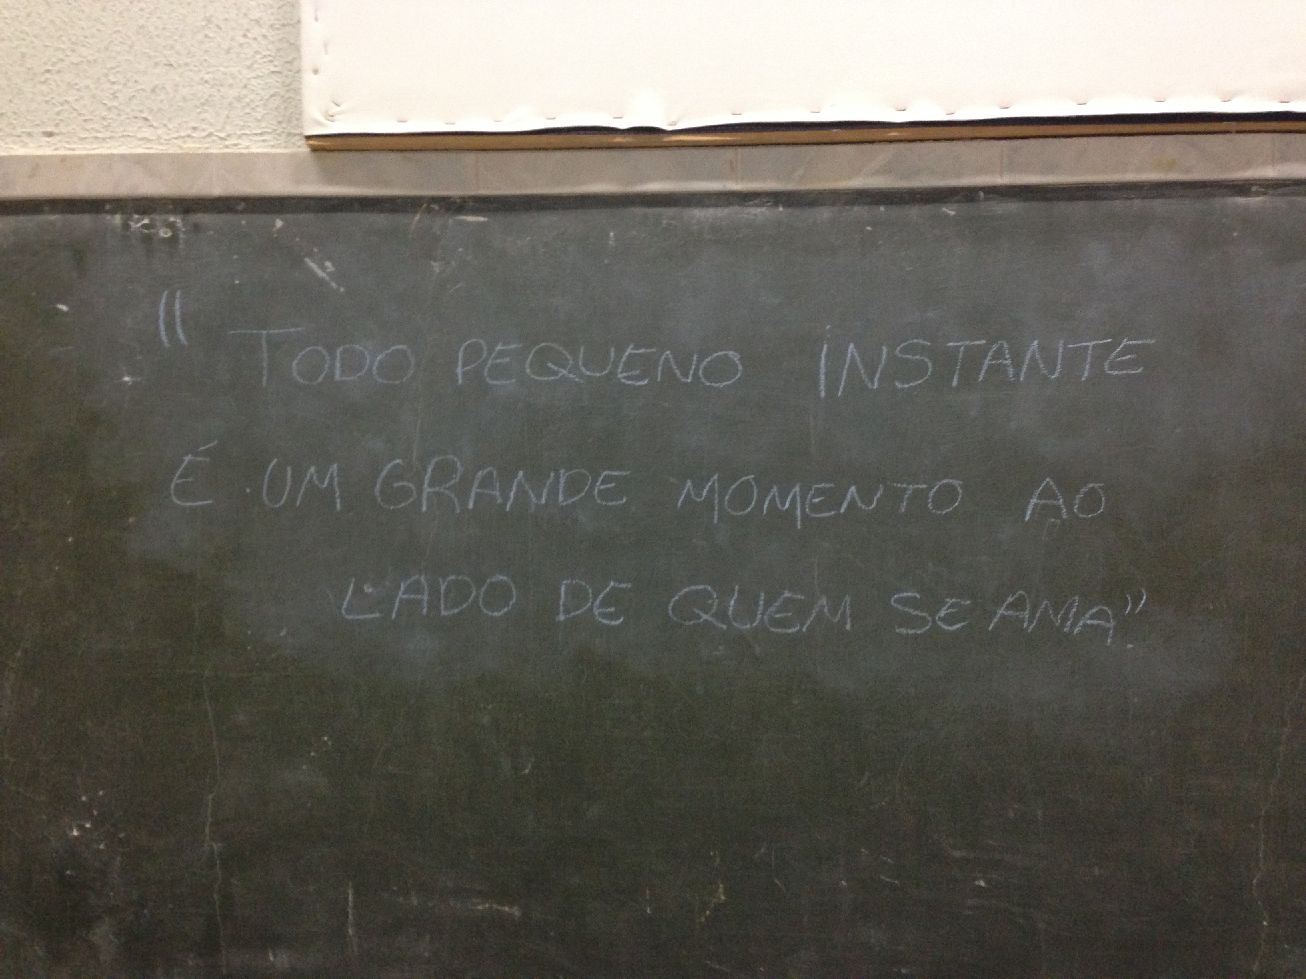 " TODO PEQUENO INSTANTE
É UM GRANDE MOMENTO AO
LADO DE QUEM SE AMA"